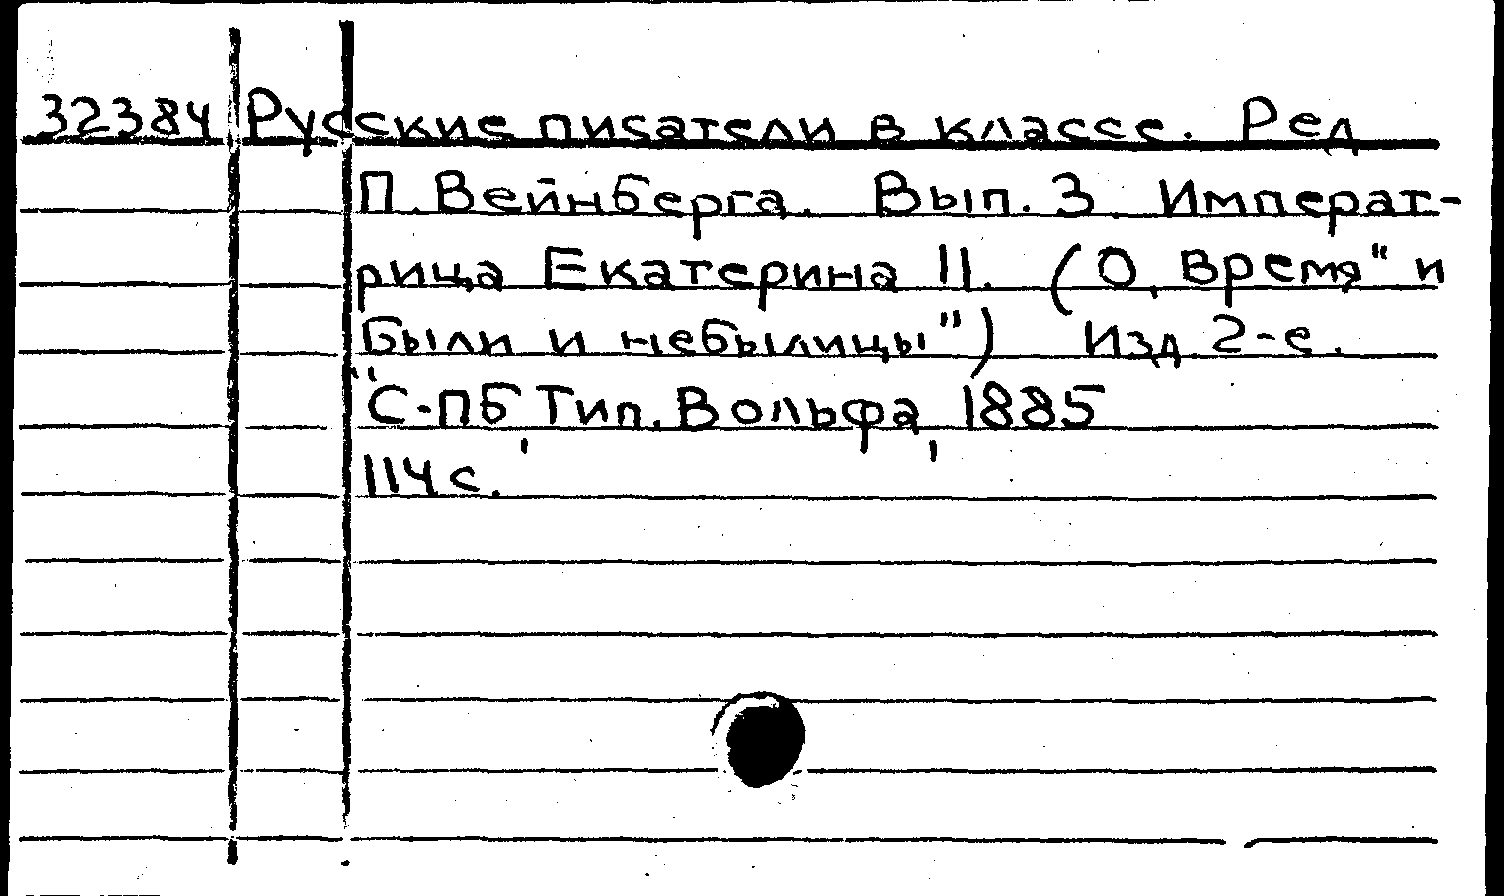 32384 Русские писатели в классе. Ред
П. Вейнберга. Вып. 3. Императ-
рица Екатерина II. (О, Время" и
"Были и небылицы") Изд 2-е.
С-ПБ, Тип. Вольфа, 1885
114 с.